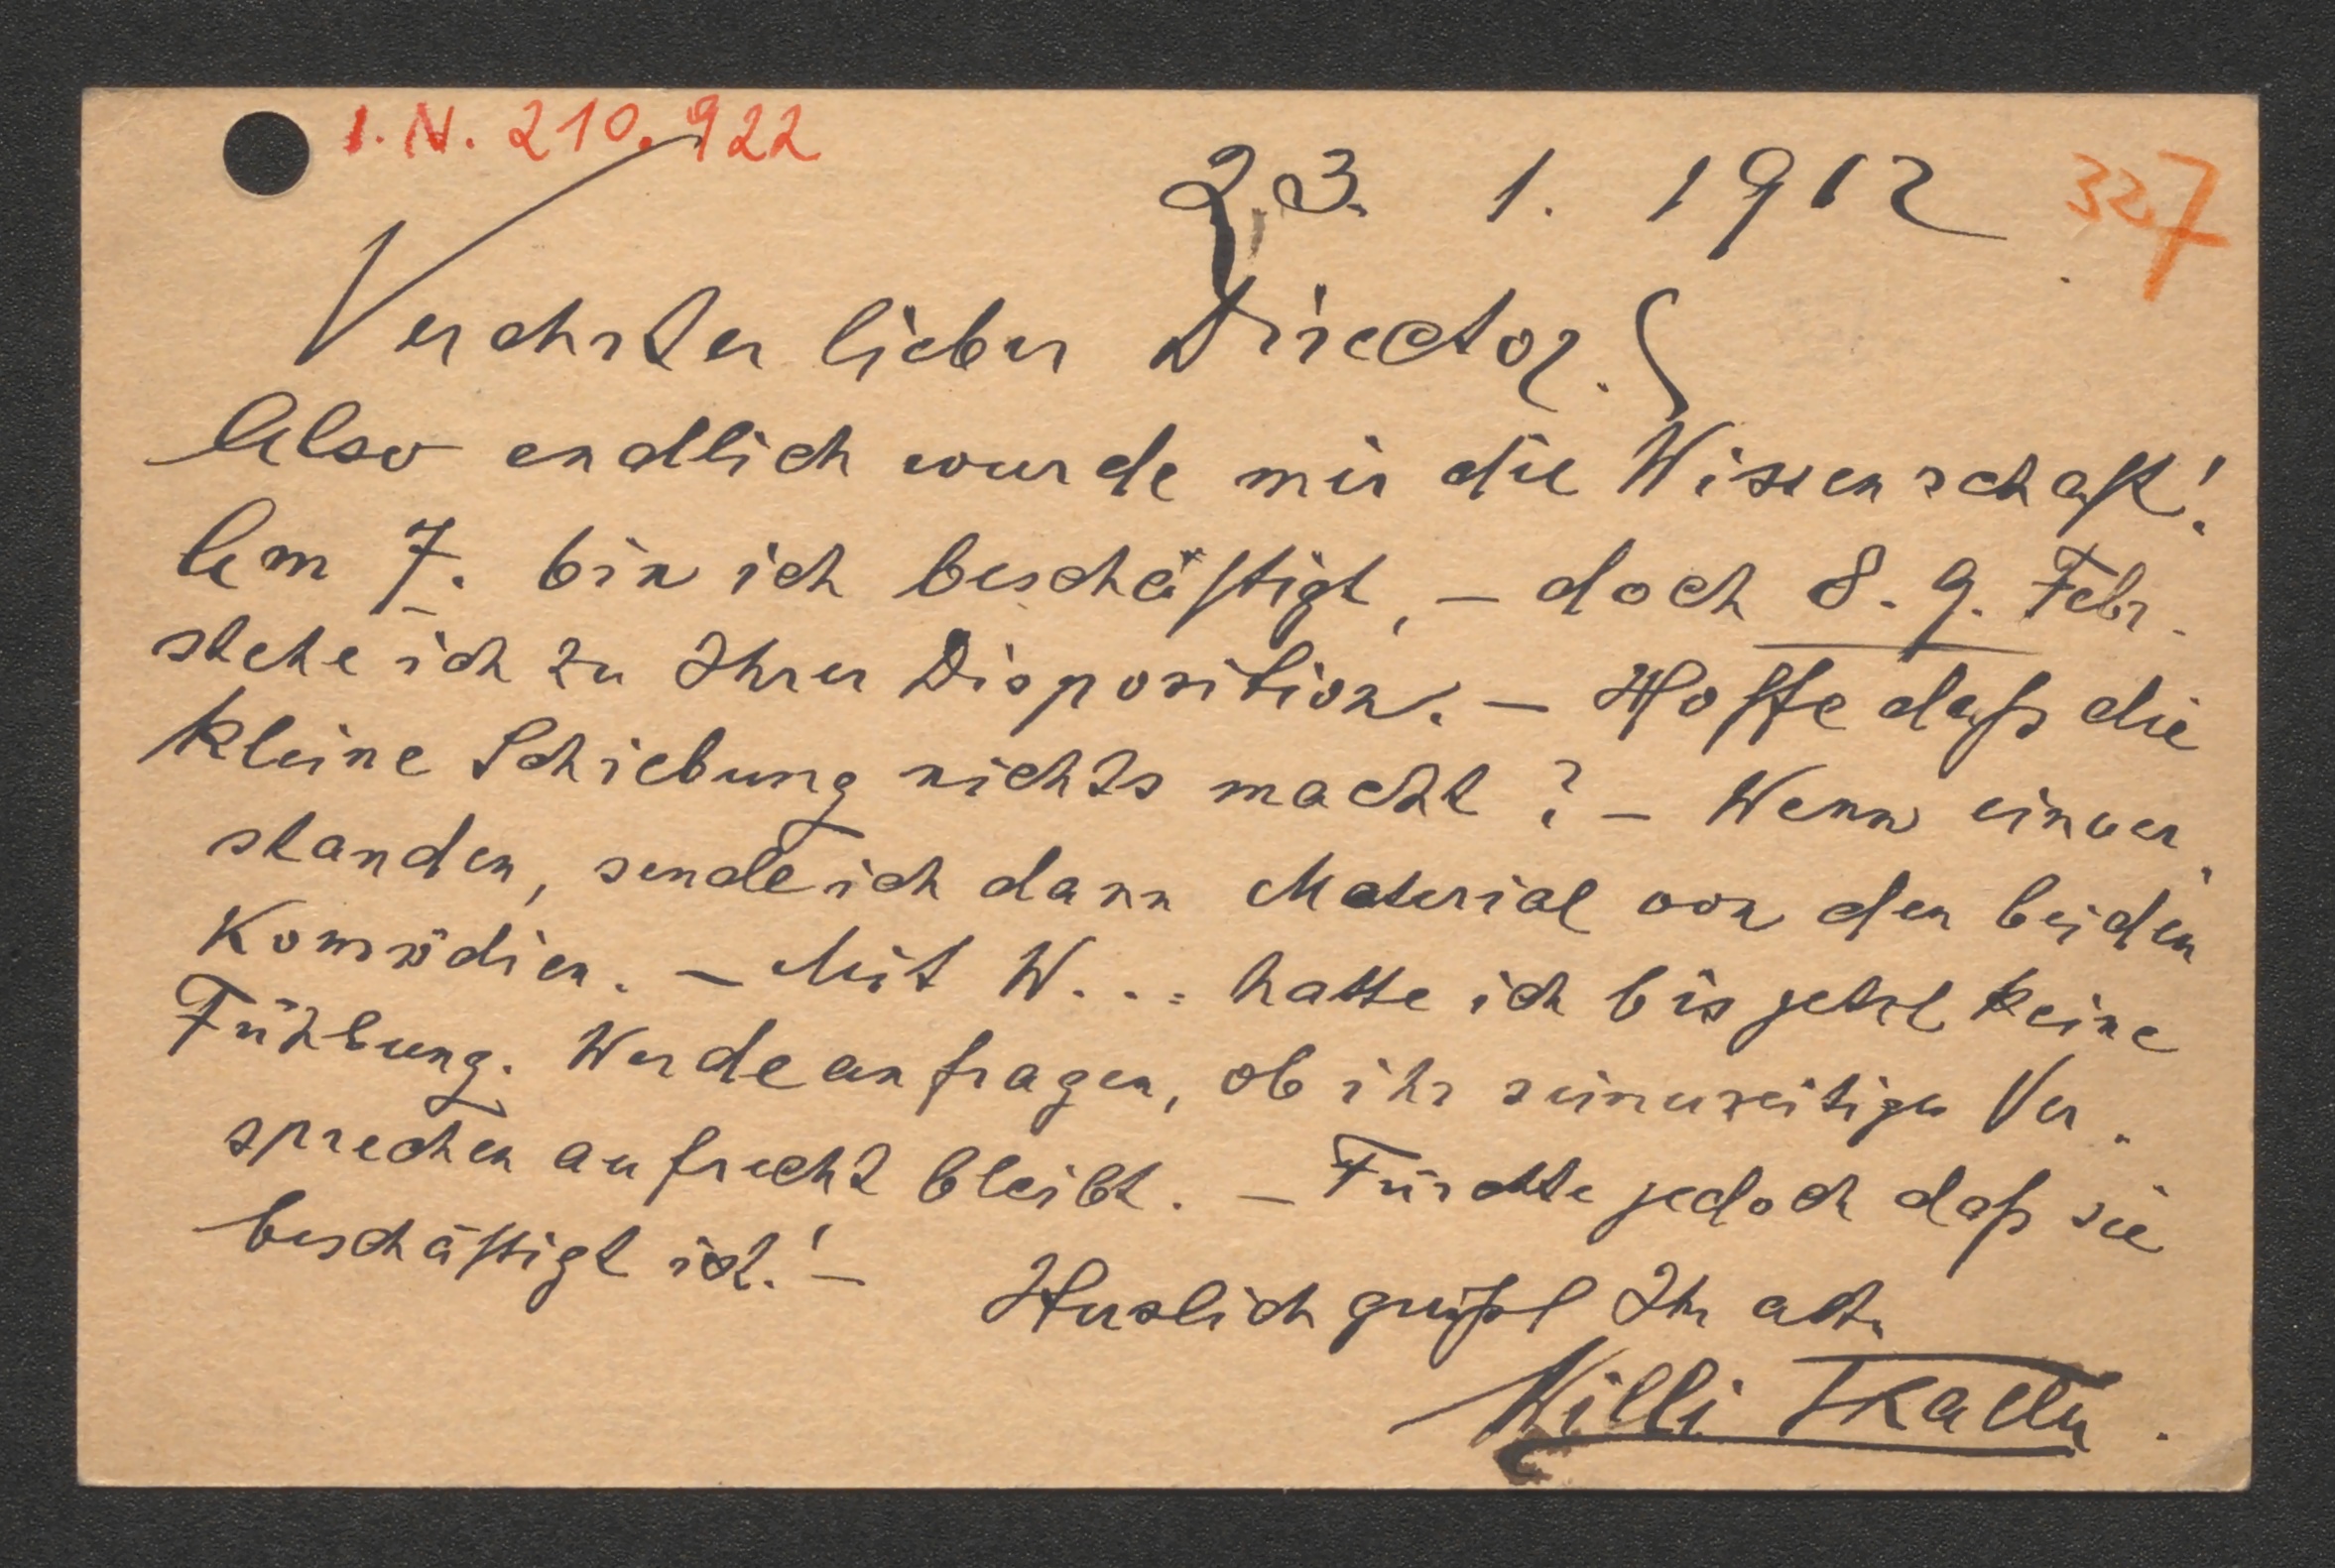 I. N. 210.922
23. 1. 1912 327
Verehrter lieber Director.
Also endlich wurde mir die Wissenschaft!
Am 7. bin ich beschäftigt, – doch 8. 9. Febr.
stehe ich zu Ihrer Disposition. – Hoffe daß die
kleine Schiebung nichts macht? – Wenn einver-
standen, sende ich dann Material von den beiden
Komödien. – Mit W... hatte ich bis jetzt keine
Fühlung. Werde anfragen, ob ihr seinerzeitiges Ver-
sprechen aufrecht bleibt. – Fürchte jedoch daß sie
beschäftigt ist! –
Herzlich grüßt Ihr alter
Willi